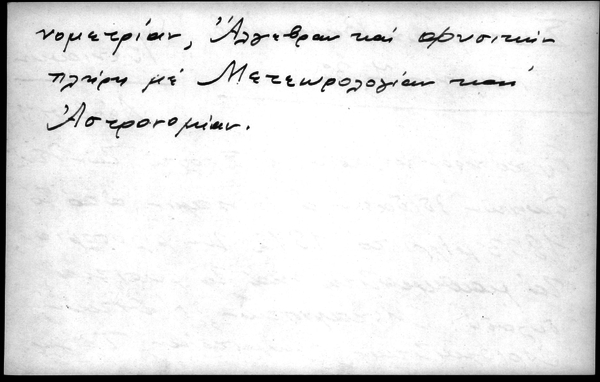 νομετρίαν, Ἄλγεβραν καί φυσικήν
πλήρη μέ Μετεωρολογίαν καί
Ἀστρονομίαν.